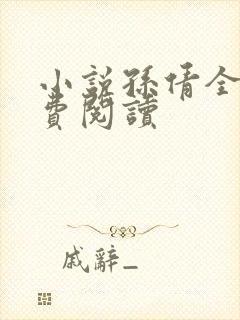 小說孫倩全
費閱讀
戚辭_